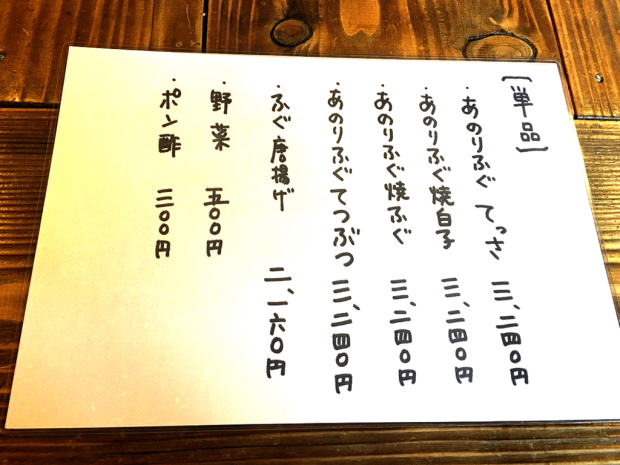 [単品]
・あのりふぐ てっさ 三、二四〇円
・あのりふぐ焼白子 三、二四〇円
・あのりふぐ焼ふぐ 三、二四〇円
・あのりふぐてつぶつ 三、二四〇円
・ふぐ唐揚げ 二、一六〇円
・野菜 五〇〇円
・ポン酢 三〇〇円